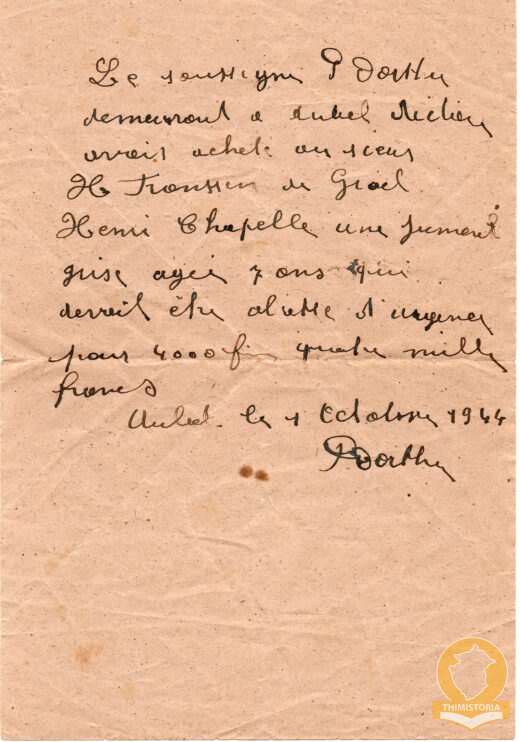 Le soussigné P Dosthu
demeurant a Aubel déclare
avoir acheté au sieurs
H Franssen de Graet
Henri Chapelle une jument
grise agée 7 ans qui
devait être abattre d'urgence
pour 4000 fr quatre mille
francs
Aubel le 1 Octobre 1944
THIMISTORIA